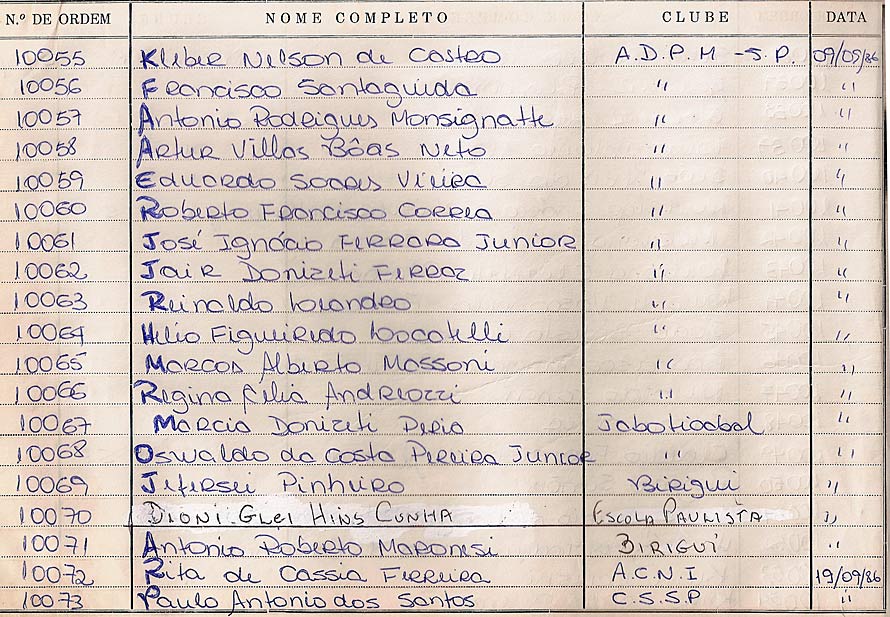 N.º DE ORDEM NOME COMPLETO CLUBE DATA
10055 Kleber Nelson de Castro A.D.P.M - S.P. 09/09/86
10056 Francisco Santaguida " "
10057 Antonio Rodrigues Monsignatte " "
10058 Artur Villas Bôas Neto " "
10059 Eduardo Soares Vieira " "
10060 Roberto Francisco Correa " "
10061 José Ignácio Ferrara Junior " "
10062 Jair Donizeti Ferraz " "
10063 Reinaldo Loandro " "
10064 Helio Figueiredo Locatelli " "
10065 Marcos Alberto Massoni " "
10066 Regina Célia Andreozzi " "
10067 Marcia Donizeti Peria Jaboticabal "
10068 Oswaldo da Costa Pereira Junior " "
10069 Jefersei Pinheiro Birigui "
10070 Dioni Glei Hins Cunha Escola Paulista "
10071 Antonio Roberto Maronesi Birigui "
10072 Rita de Cassia Ferreira A.C.N.I 19/09/86
10073 Paulo Antonio dos Santos C.S.S.P "